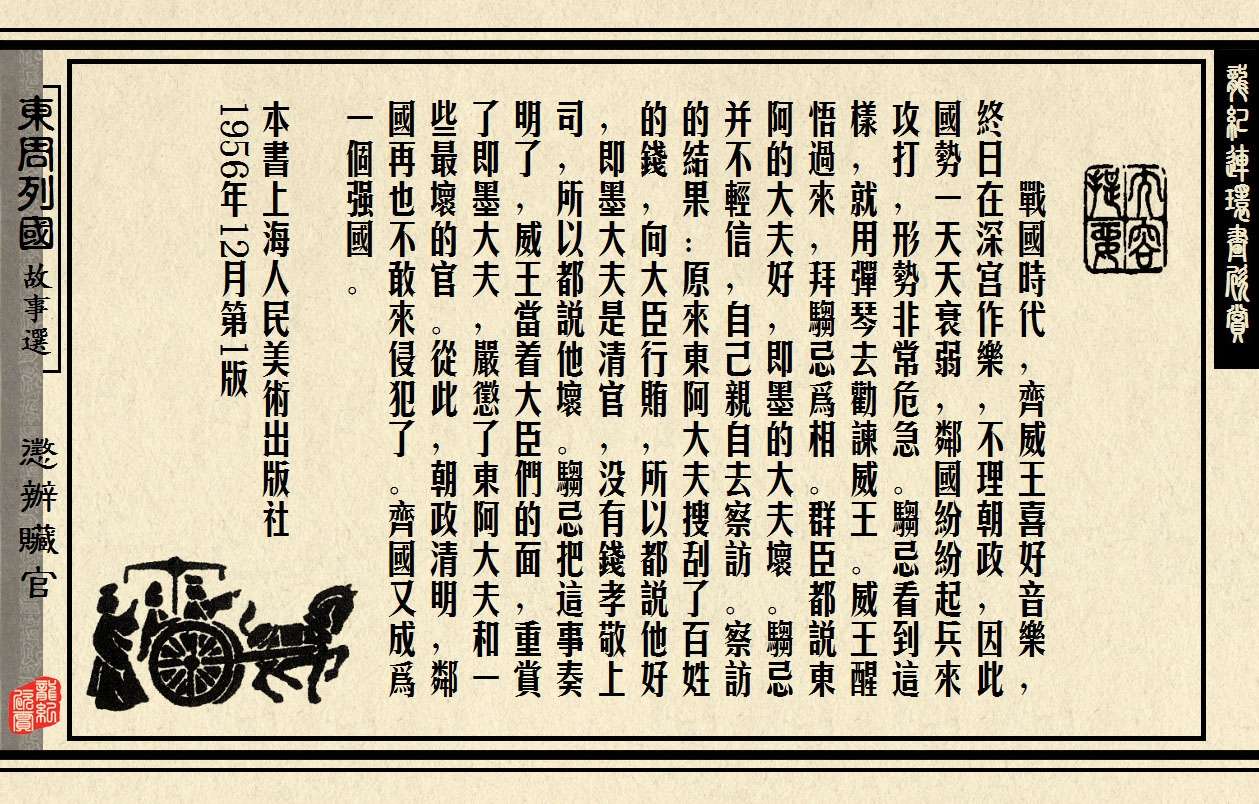 龍紀連環畫欣賞
內容
提要
戰國時代，齊威王喜好音樂，
終日在深宫作樂，不理朝政，因此
國勢一天天衰弱，鄰國紛紛起兵來
攻打，形勢非常危急。騶忌看到這
樣，就用彈琴去勸諫威王。威王醒
悟過來，拜騶忌爲相。群臣都説東
阿的大夫好，即墨的大夫壞。騶忌
并不輕信，自己親自去察訪。察訪
的結果：原來東阿大夫搜刮了百姓
的錢，向大臣行賄，所以都説他好
，即墨大夫是清官，没有錢孝敬上
司，所以都説他壞。騶忌把這事奏
明了，威王當着大臣們的面，重賞
了即墨大夫，嚴懲了東阿大夫和一
些最壞的官。從此，朝政清明，鄰
國再也不敢來侵犯了。齊國又成爲
一個强國。
本書上海人民美術出版社
1956年12月第1版
東周列國故事選
懲辦贜官
龍紀
欣賞